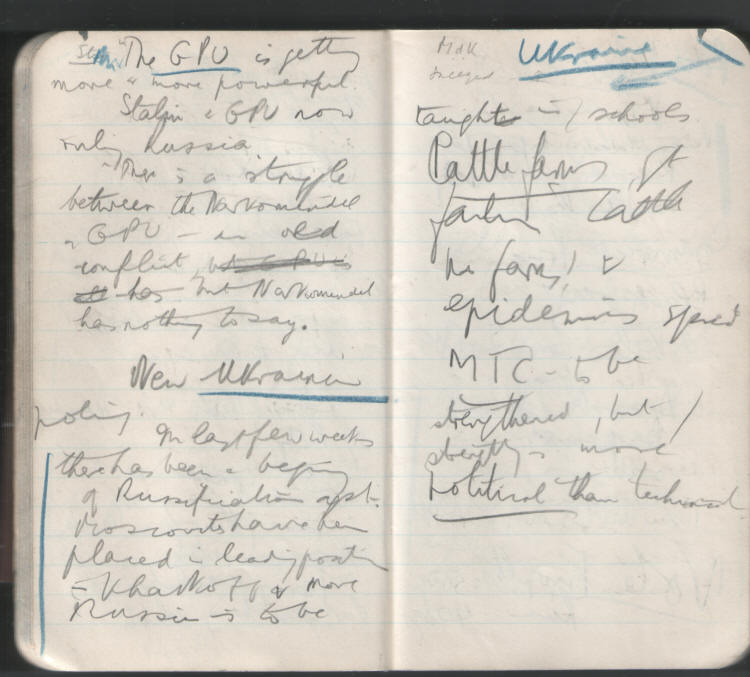 "The GPU is getting
more & more powerful.
Stalin & GPU now
ruling Russia
"There is a struggle
between the Narkomindel
& GPU – an old
conflict, but GPU is
has but Narkomindel
has nothing to say.
New Ukrainian
policy.
In last few weeks
there has been a
of Russification agst.
Moscovits have been
placed in leading position
in Kharkoff & more
Russian is to be
Ukraine
taught in schools
Cattle farms
Cattle
in farms, &
epidemics spread
MTC – to be
strengthened, but
strength is more
political than technical